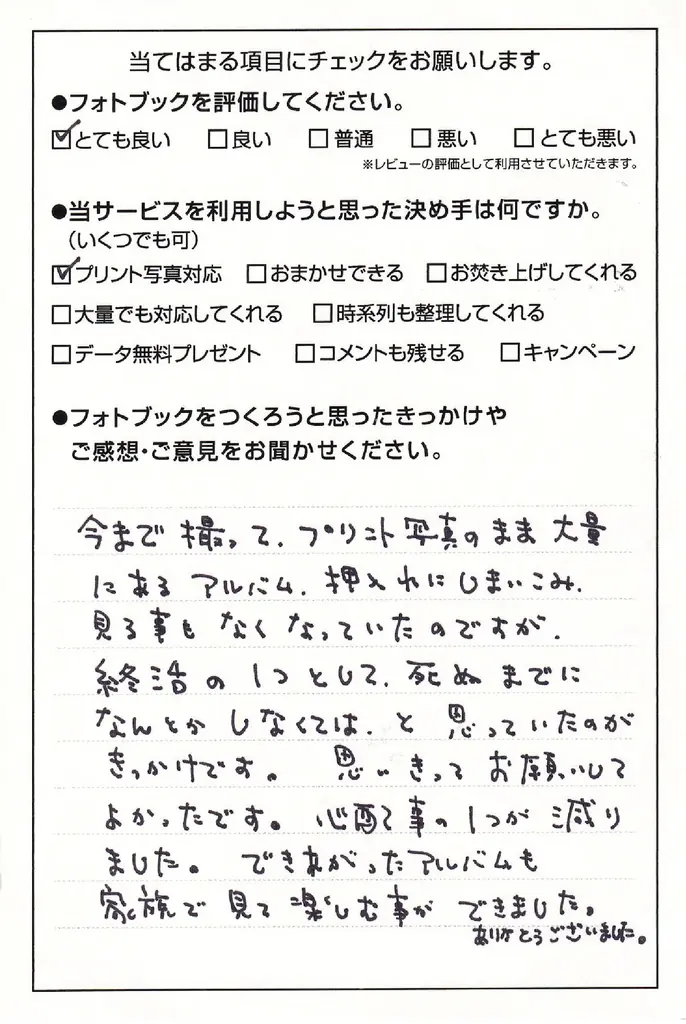 当てはまる項目にチェックをお願いします。
●フォトブックを評価してください。
☑とても良い □良い □普通 □悪い □とても悪い
※レビューの評価として利用させていただきます。
●当サービスを利用しようと思った決め手は何ですか。
（いくつでも可）
☑プリント写真対応 □おまかせできる □お焚き上げしてくれる
□大量でも対応してくれる □時系列も整理してくれる
□データ無料プレゼント □コメントも残せる □キャンペーン
●フォトブックをつくろうと思ったきっかけや
ご感想・ご意見をお聞かせください。
今まで撮って、プリント写真のまま大量
にあるアルバム、押入れにしまいこみ、
見る事もなくなっていたのですが、
終活の1つとして、死ぬまでに
なんとかしなくては、と思っていたのが
きっかけです。思いきってお願いして
よかったです。心配事の1つが減り
ました。できあがったアルバムも
家族で見て楽しむ事ができました。
ありがとうございました。